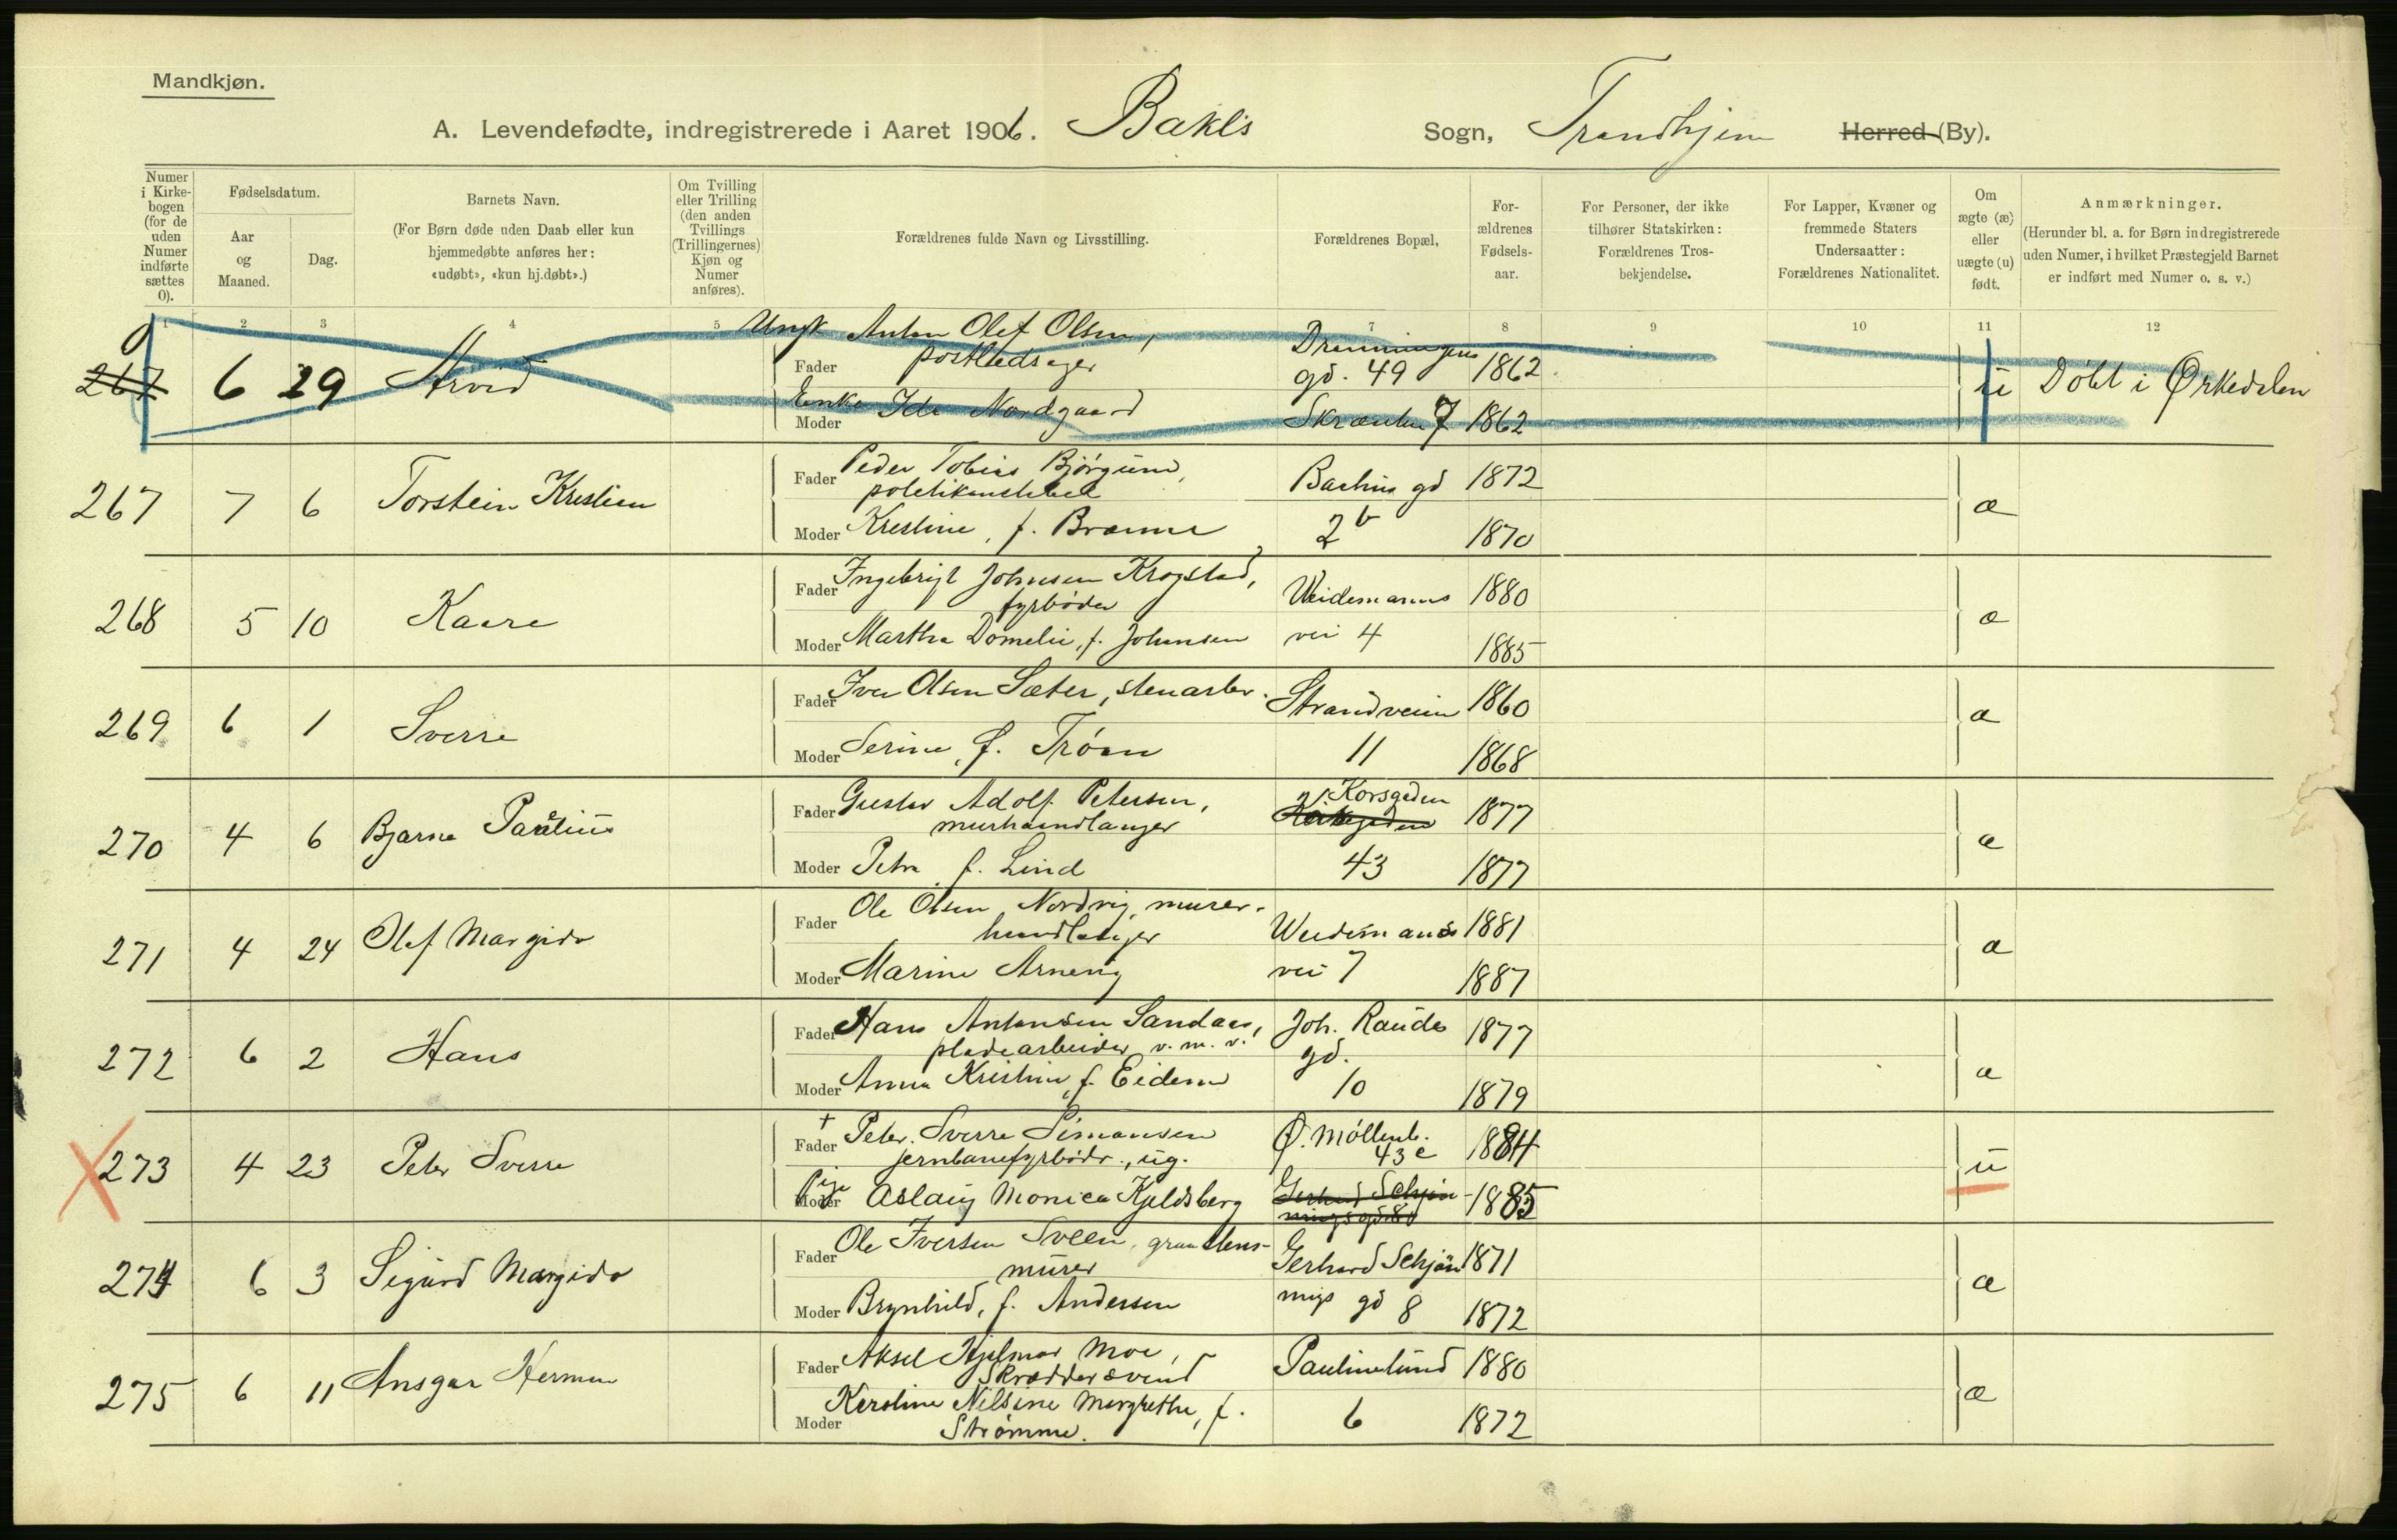 Mandkjøn.
A. Levendefødte, indregistrerede i Aaret 1906. Bakl's Sogn, Trondhjem Herred (By).
Numer i Kirkebogen (for de uden Numer indførte sættes 0).
Fødselsdatum.
Aar og Maaned.
Dag.
Barnets Navn.
(For Børn døde uden Daab eller kun
hjemmedøbte anføres her:
«udøbt», «kun hj.døbt».)
Om Tvilling
eller Trilling
(den anden
Tvillings
(Trillingernes)
Kjøn og
Numer
anføres).
Forældrenes fulde Navn og Livsstilling.
Forældrenes Bopæl,
For-
ældrenes
Fødsels-
aar.
For Personer, der ikke
tilhører Statskirken:
Forældrenes Tros-
bekjendelse.
For Lapper, Kvæner og
fremmede Staters
Undersaatter:
Forældrenes Nationalitet.
Om
ægte (æ)
eller
uægte (u)
født.
Anmærkninger.
(Herunder bl. a. for Børn indregistrerede
uden Numer, i hvilket Præstegjeld Barnet
er indført med Numer o. s. v.)
1 2 3 4 5 7 8 9 10 11 12
0
267 6 29 Arvid
Ungk Anton Olef Olsen,
Fader postledsager
Dronningens
gd. 49 1862
Moder Enke Ida Nordgaard Skrænten 7 1862
u Döbt i Ørkedalen
267 7 6 Torstein Kristian
Fader Peder Tobias Bjørgum,
politikonstabel Bachus gd 1872
Moder Kristine, f. Bromme 2 b 1870
æ
268 5 10 Kaare
Fader Ingebrigt Johnsen Krogstad,
fyrböder Weidemanns 1880
Moder Martha Domelie, f. Johansen vei 4 1885
æ
269 6 1 Sverre
Fader Iver Olsen Sæter, stenarb. Strandveien 1860
Moder Serine, f. Tröen 11 1868
æ
270 4 6 Bjarne Paulius
Fader Gustav Adolf Petersen,
murhaandlanger Korsgaden 1877
Moder Petra f. Lind 43 1877
æ
271 4 24 Olef Margido
Fader Ole Olsen Nordvig, murer-
haandlanger Weidemans 1881
Moder Marine Arneng vei 7 1887
æ
272 6 2 Hans
Fader Hans Antonsen Sandaas,
pladearbeider v. m. v. Joh. Raudes 1877
gd.
Moder Anna Kristine, f. Eidem 10 1879
æ
273 4 23 Peter Sverre
+ Fader Peter Sverre Simonsen
jernbanefyrböder, ug. Ø. Möllenb.
43 c 1884
Pige
Moder Aslaug Monica Kjeldsberg Gerhard Schjön
nings gd 80 1885
u
274 6 3 Sigurd Margido
Fader Ole Iversen Sveen,
murer Gerhard Schjön 1871
Moder Brynhild, f. Andersen nings gd 8 1872
æ
275 6 11 Ansgar Herman
Fader Aksel Hjalmar Moe,
Skræddersvend Paulinelund 1880
Moder Karoline Nilsine Margrethe, f.
Strömme. 6 1872
æ